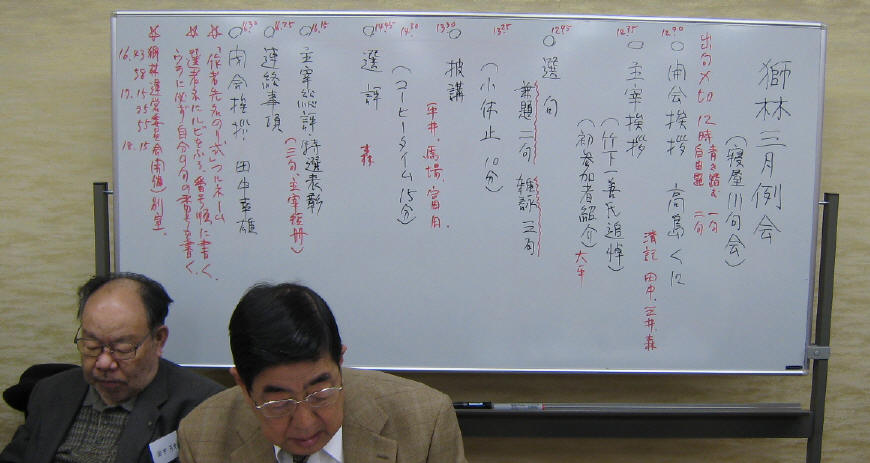 獅林三月例会
(寝屋川句会)
出句〆切 12時 青き踏む 一句
自由題 二句
12.30
○開会挨拶 高島くに
清記 田中、三井、森
12.35
○主宰挨拶
(竹下一善氏追悼)
(初参加者紹介) 大平
12.45
○選句
兼題 二句 雑詠 三句
13.25
(小休止 10分)
13.30
○披講
平井、馬場、富田
14.30
(コーヒータイム 15分)
14.45
○選評 森
16.15
○主宰総評・特選表彰
(三句、主宰短冊)
16.25
○連絡事項
16.30
○閉会挨拶 田中幸雄
☆「作者先名のり式」フルネーム
選者名にルビをふる、番号順に書く、
☆獅林運営委員会(開催)別室、
16.43
58
17.15
35
55
18.15